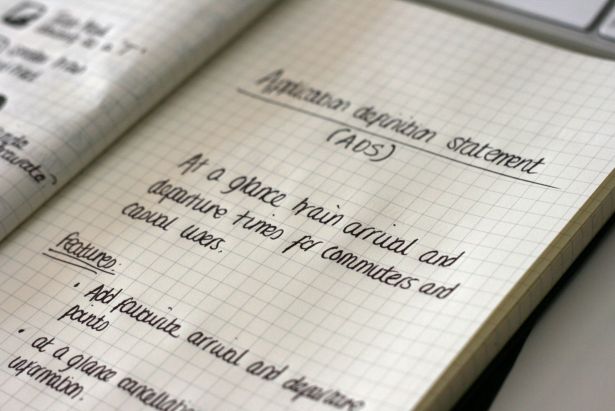 Application definition statement
(ADS)
At a glance train arrival and
departure times for commuters and
casual users.
Features:
• Add favourite arrival and departure
points
• at a glance cancellation
information.